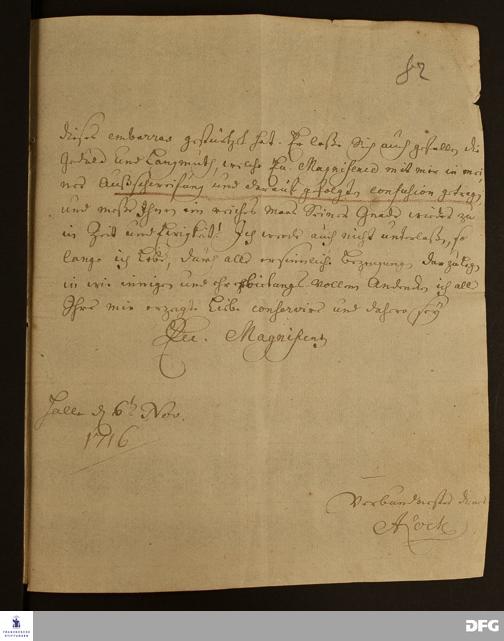 82
dieses embarras gestürzet hat. Er laße Sich auch gefallen die
Gedult und Langmuth, welche Eu. Magnificenz mit mir in mei-
ner Außschweifung und darauf gefolgten confusion getragen,
und meße Ihnen ein reiches Maas Seiner Gnade wieder zu
in Zeit und Ewigkeit! Ich werde auch nicht unterlaßen, so
lange ich Lebe, durch alle ersinnliche Bezeugungen darzulegen
in wie innigen und Ehrerbietungs-Vollem Andencken ich alle
Ihre mir erzeigte Liebe conservire und dahero sey
Eu. Magnificenz
Halle d 6t Nov.
1716
Verbundenster Diener
FRANCKESCHE STIFTUNGEN
DFG